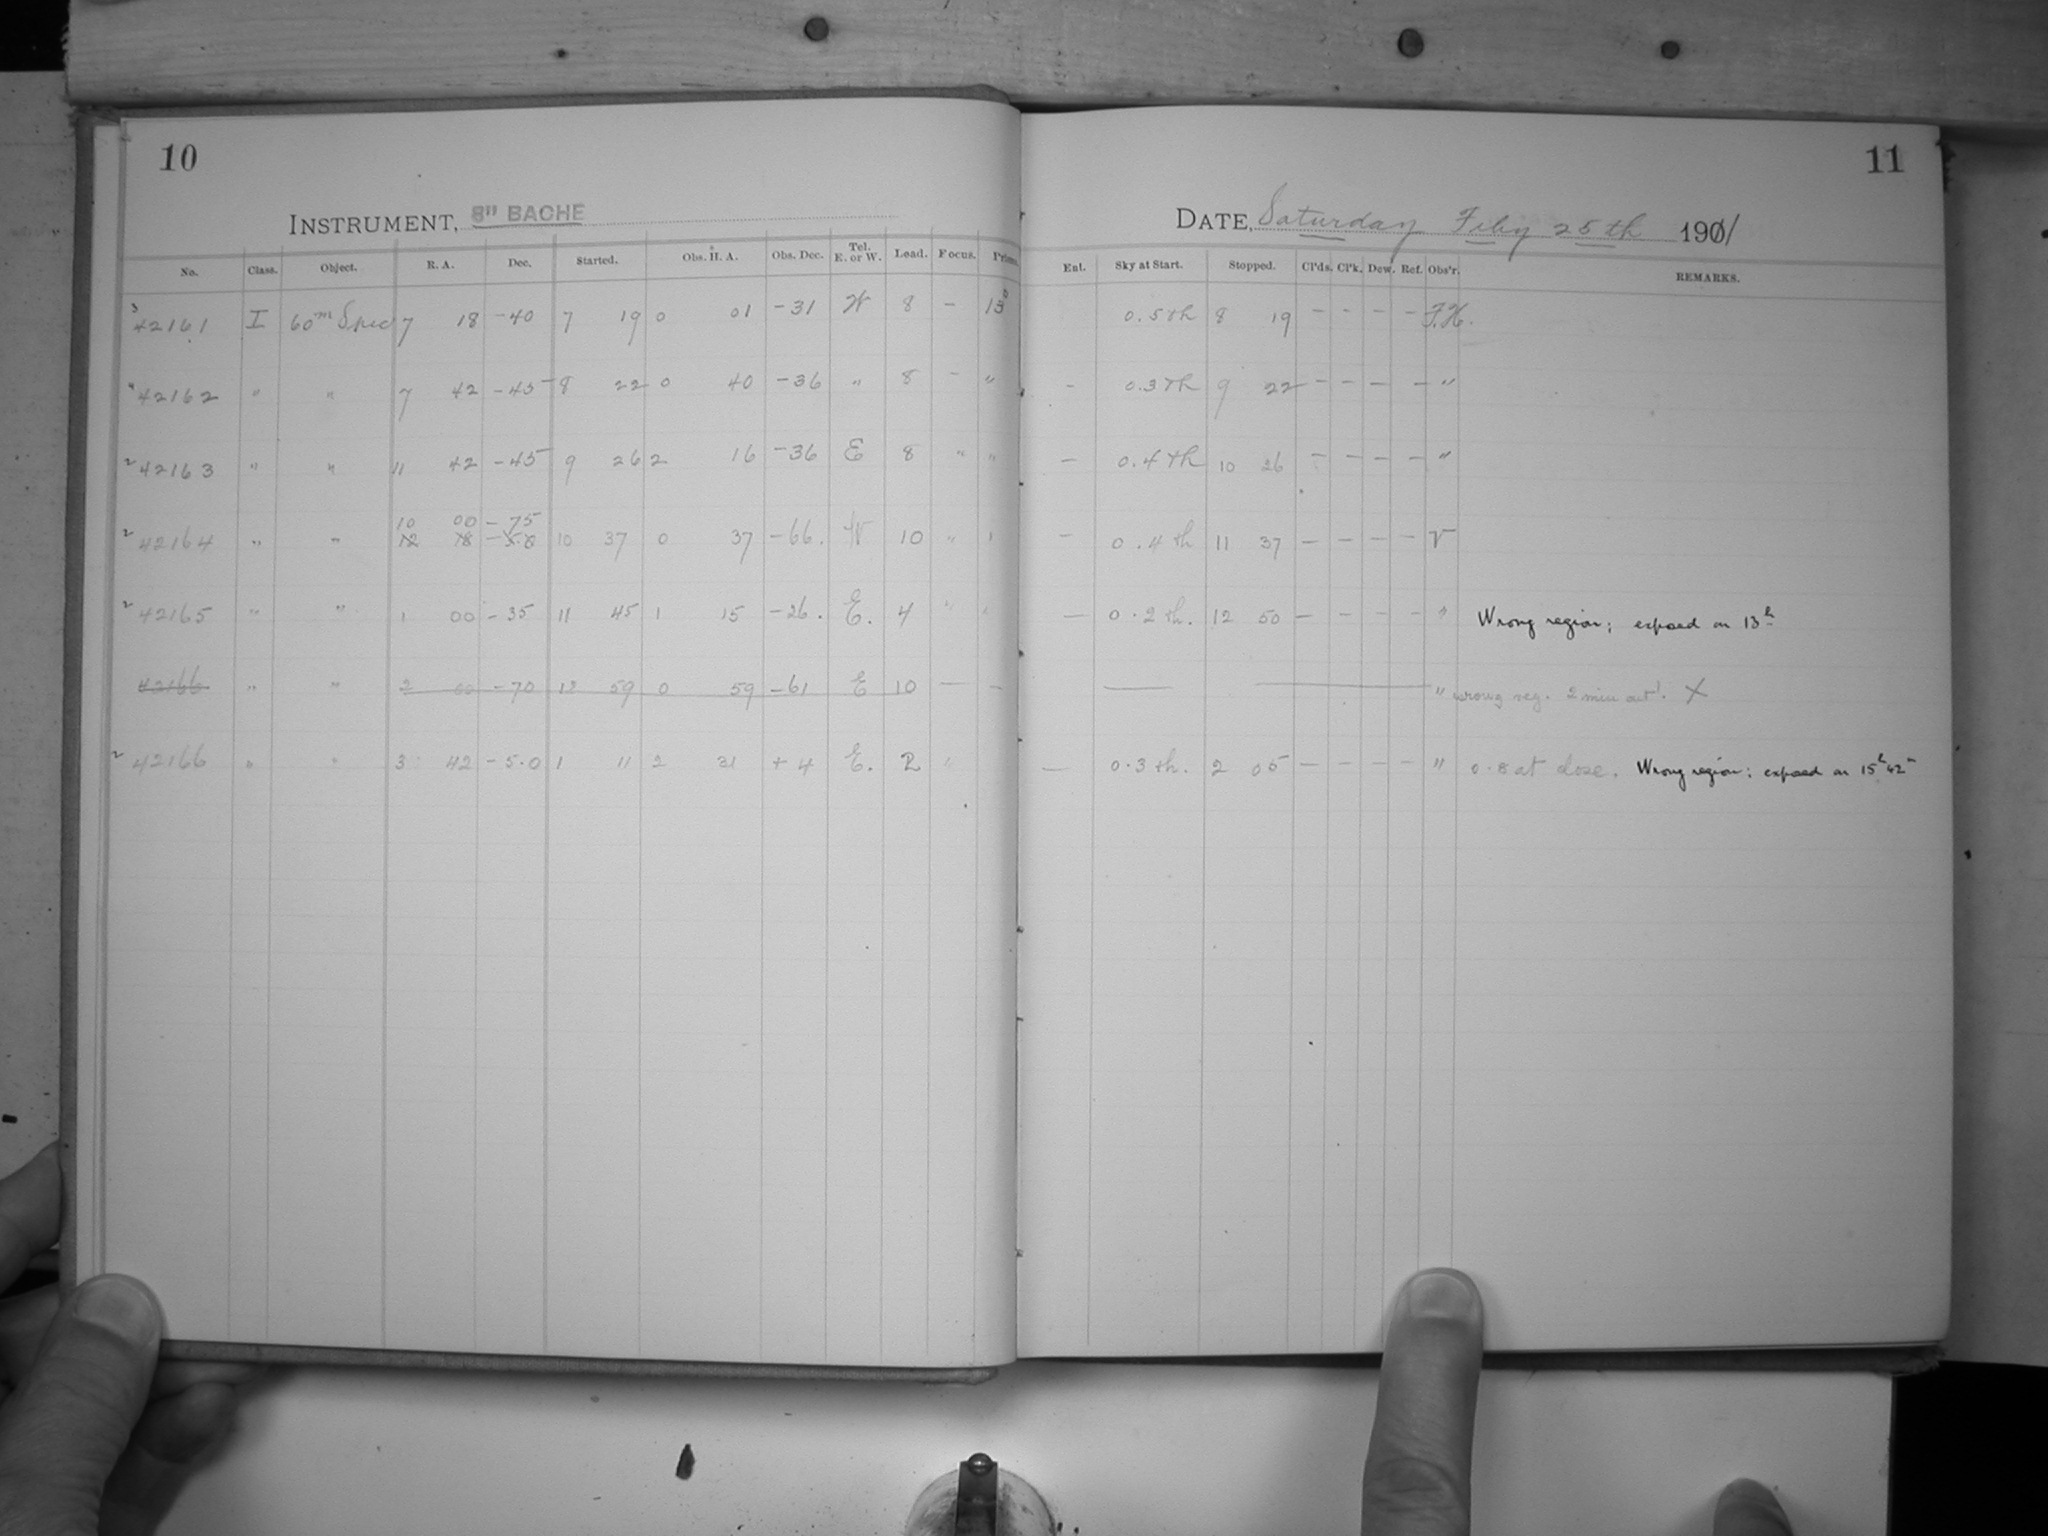 10
INSTRUMENT, 8" BACHE
No. Class. Object. R. A. Dec. Started. Obs. H. A. Obs. Dec. Tel. E. or W. Load. Focus. Prism.
3 42161 I 60m Spec 7 18 -40 7 19 0 01 -31 W 8 - 13°
42162 " " 7 42 -45 8 22 0 40 -36 " 8 - "
2 42163 " " 11 42 -45 9 26 2 16 -36 E 8 " "
10 00 -75
2 42164 " " 12 18 -5.0 10 37 0 37 -66. W 10 "
2 42165 " " 1 00 -35 11 45 1 15 -26. E. 4 "
42166 " " 2 00 -70 12 59 0 59 -61 E 10 — –
2 42166 " " 3 42 -5.0 1 11 2 31 +4 E. 2 "
11
DATE, Saturday Feby 25th 1901
Ent. Sky at Start. Stopped. Cl'ds. Cl'k. Dew. Ref. Obs'r. REMARKS.
0.5th 8 19 - - - - F.H.
- 0.3th 9 22 - - - - "
- 0.4th 10 26 - - - - "
- 0.4th 11 37 - - - - V
- 0.2th. 12 50 - - - - " Wrong region; exposed on 13h
— — " wrong reg. 2 min out. X
- 0.3th. 2 05 - - - - " 0.8 at close. Wrong region; exposed on 15h 42m